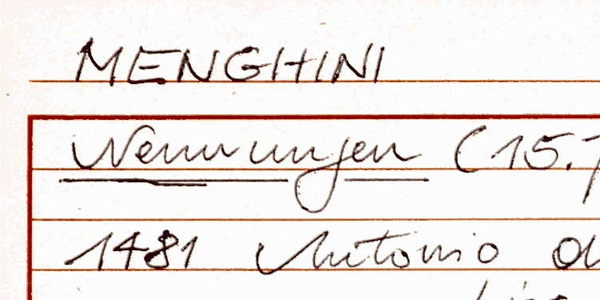 MENGHINI
Nennungen (15.
1481 Antonio d